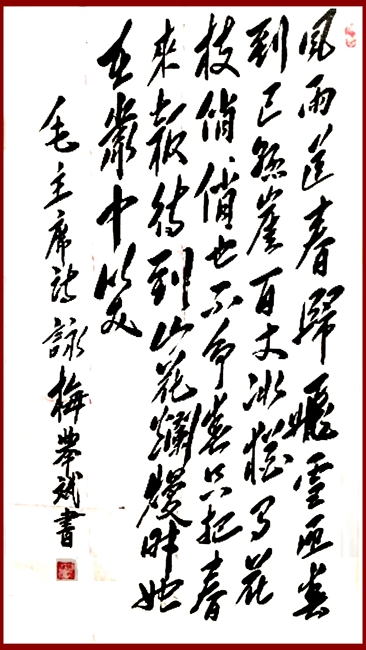 风雨送春歸飛雪迎春
到已是懸崖百丈冰猶有花
枝俏俏也不争春只把春
來報待到山花爛熳时她
在叢中笑
毛主席詩詠梅斌書